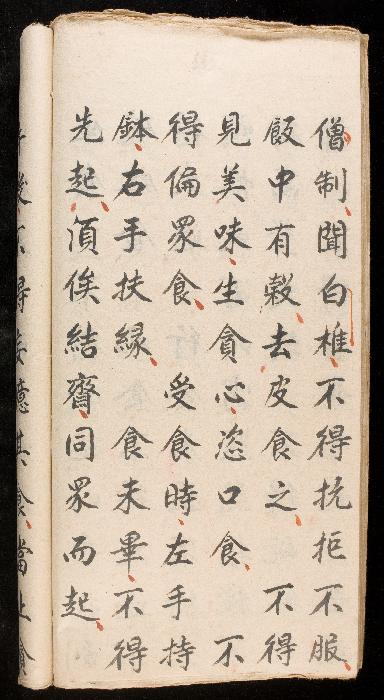 僧制聞白椎不得抗拒不服
飯中有穀去皮食之 不得
見美味生貪心恣口食 不
得偏眾食 受食時左手持
鉢右手扶緣 食未畢不得
先起須俟結齋同眾而起